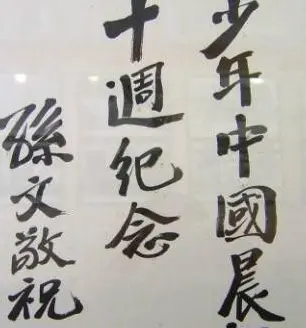 少年中國晨
十週紀念
孫文敬祝